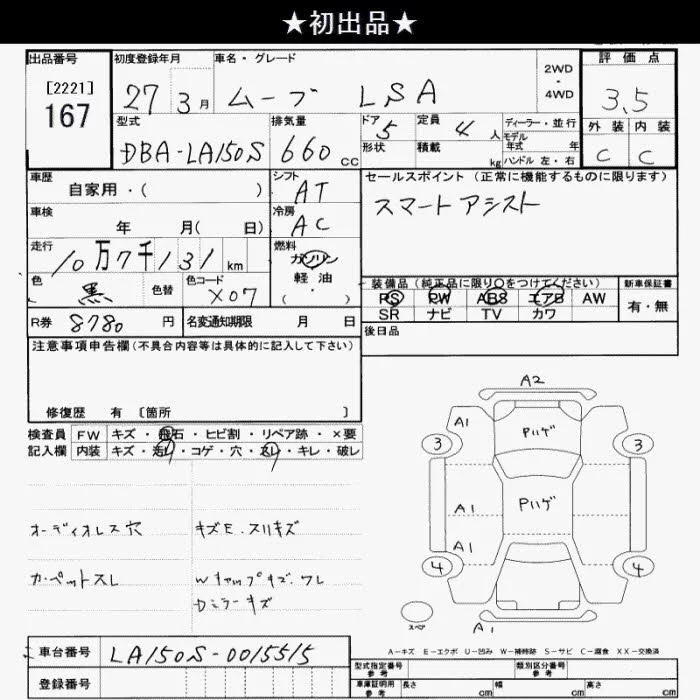 ★初出品★
出品番号 初度登録年月 車名・グレード 2WD・4WD 評価点
[2221]
167
27 3月 ムーブ LSA 3.5
型式 排気量 ドア 5 定員 4人 ディーラー・並行 外装 内装
DBA-LA150S 660cc 形状 積載 kg モデル年式 年 ハンドル 左・右 C C
車歴 自家用・( ) シフト AT セールスポイント (正常に機能するものに限ります)
車検 年 月( 日) 冷房 AC スマートアシスト
走行 10万7千131km 燃料 ガソリン 軽油 ・( )
色 黒 色替 色コード X07 装備品 (純正品に限り○をつけてください) 新車保証書
PS PW ABS エアB AW 有・無
R券 8780円 名変通知期限 月 日 SR ナビ TV カワ
後日品
注意事項申告欄 (不具合内容等は具体的に記入して下さい)
修復歴 有 〔箇所 〕
検査員 FW キズ・飛石・ヒビ割・リペア跡・×要
記入欄 内装 キズ・コゲ・穴・キレ・破レ
オーディオレス穴 キズE.スリキズ
カーペットスレ Wキャップキズ.ワレ
Dミラーキズ
A2
A1 Pハゲ
3 3
A1 Pハゲ
A1
4 4
スペア A1
A-キズ E-エクボ U-凹み W-補修跡 S-サビ C-腐食 XX-交換済
車台番号 LA150S-0015515
型式指定番号 参考 類別区分番号 参考
登録番号 車庫証明用 参考 長さ cm 幅 cm 高さ cm